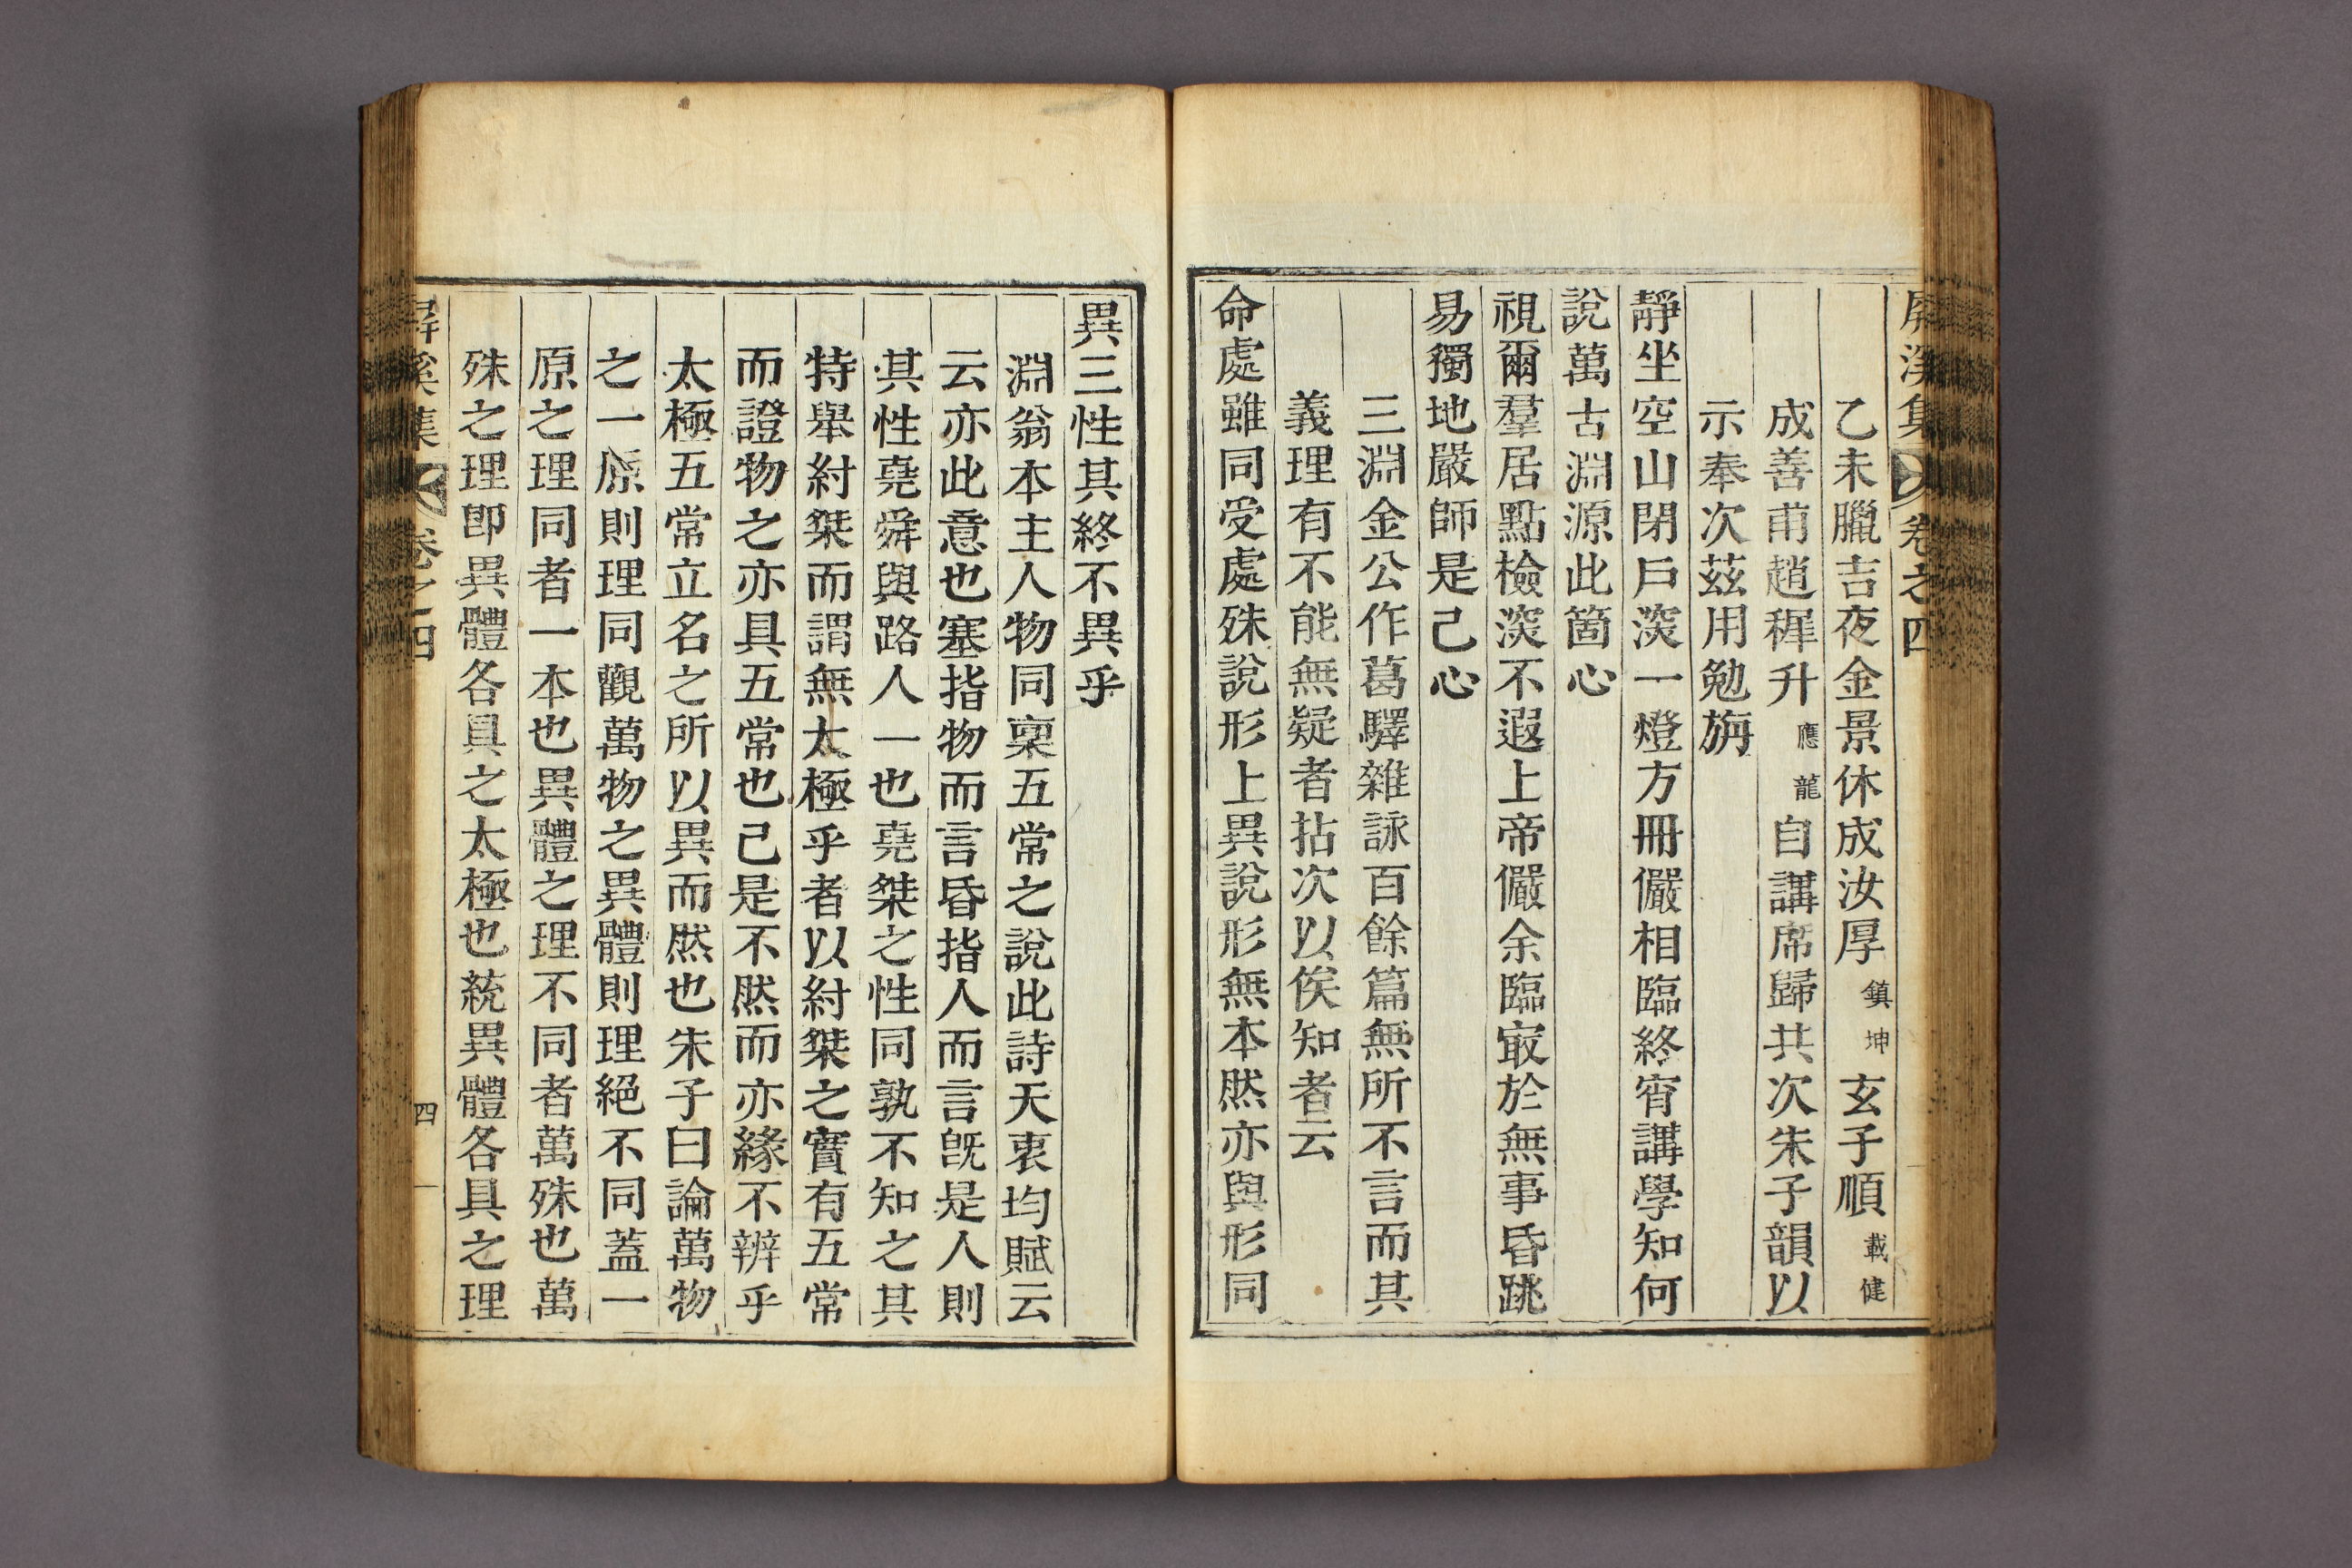 屏溪集 卷之四
乙未臘吉夜金景休成汝厚鎮坤玄子順載健
成善甫趙穉升應龍自講席歸共次朱子韻以
示奉次玆用勉旃
靜坐空山閉戶深一燈方冊儼相臨終宵講學知何
說萬古淵源此箇心
視爾羣居點檢深不遐上帝儼余臨㝡於無事昏跳
易獨地嚴師是己心
三淵金公作葛驛雜詠百餘篇無所不言而其
義理有不能無疑者拈次以俟知者云
命處雖同受處殊說形上異說形無本然亦與形同
異三性其終不異乎
淵翁本主人物同稟五常之說此詩天衷均賦云
云亦此意也塞指物而言昏指人而言旣是人則
其性堯舜與路人一也堯桀之性同孰不知之其
特舉紂桀而謂無太極乎者以紂桀之實有五常
而證物之亦具五常也己是不然而亦緣不辨乎
太極五常立名之所以異而然也朱子曰論萬物
之一原則理同觀萬物之異體則理絕不同蓋一
原之理同者一本也異體之理不同者萬殊也萬
殊之理卽異體各具之太極也統異體各具之理
屏溪集 卷之四 四